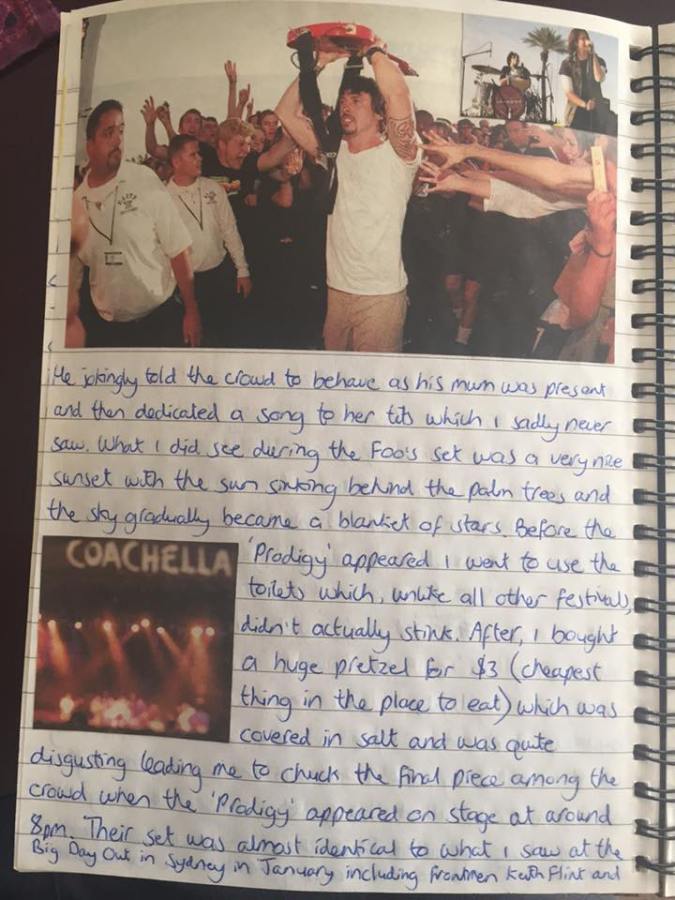 He jokingly told the crowd to behave as his mum was present
and then dedicated a song to her tits which I sadly never
saw. What I did see during the Foo's set was a very nice
sunset with the sun sinking behind the palm trees and
the sky gradually became a blanket of stars. Before the
COACHELLA
'Prodigy' appeared I went to use the
toilets which, unlike all other festivals,
didn't actually stink. After, I bought
a huge pretzel for $3 (cheapest
thing in the place to eat) which was
covered in salt and was quite
disgusting leading me to chuck the final piece among the
crowd when the 'Prodigy' appeared on stage at around
8pm. Their set was almost identical to what I saw at the
Big Day Out in Sydney in January including frontmen Keith Flint and